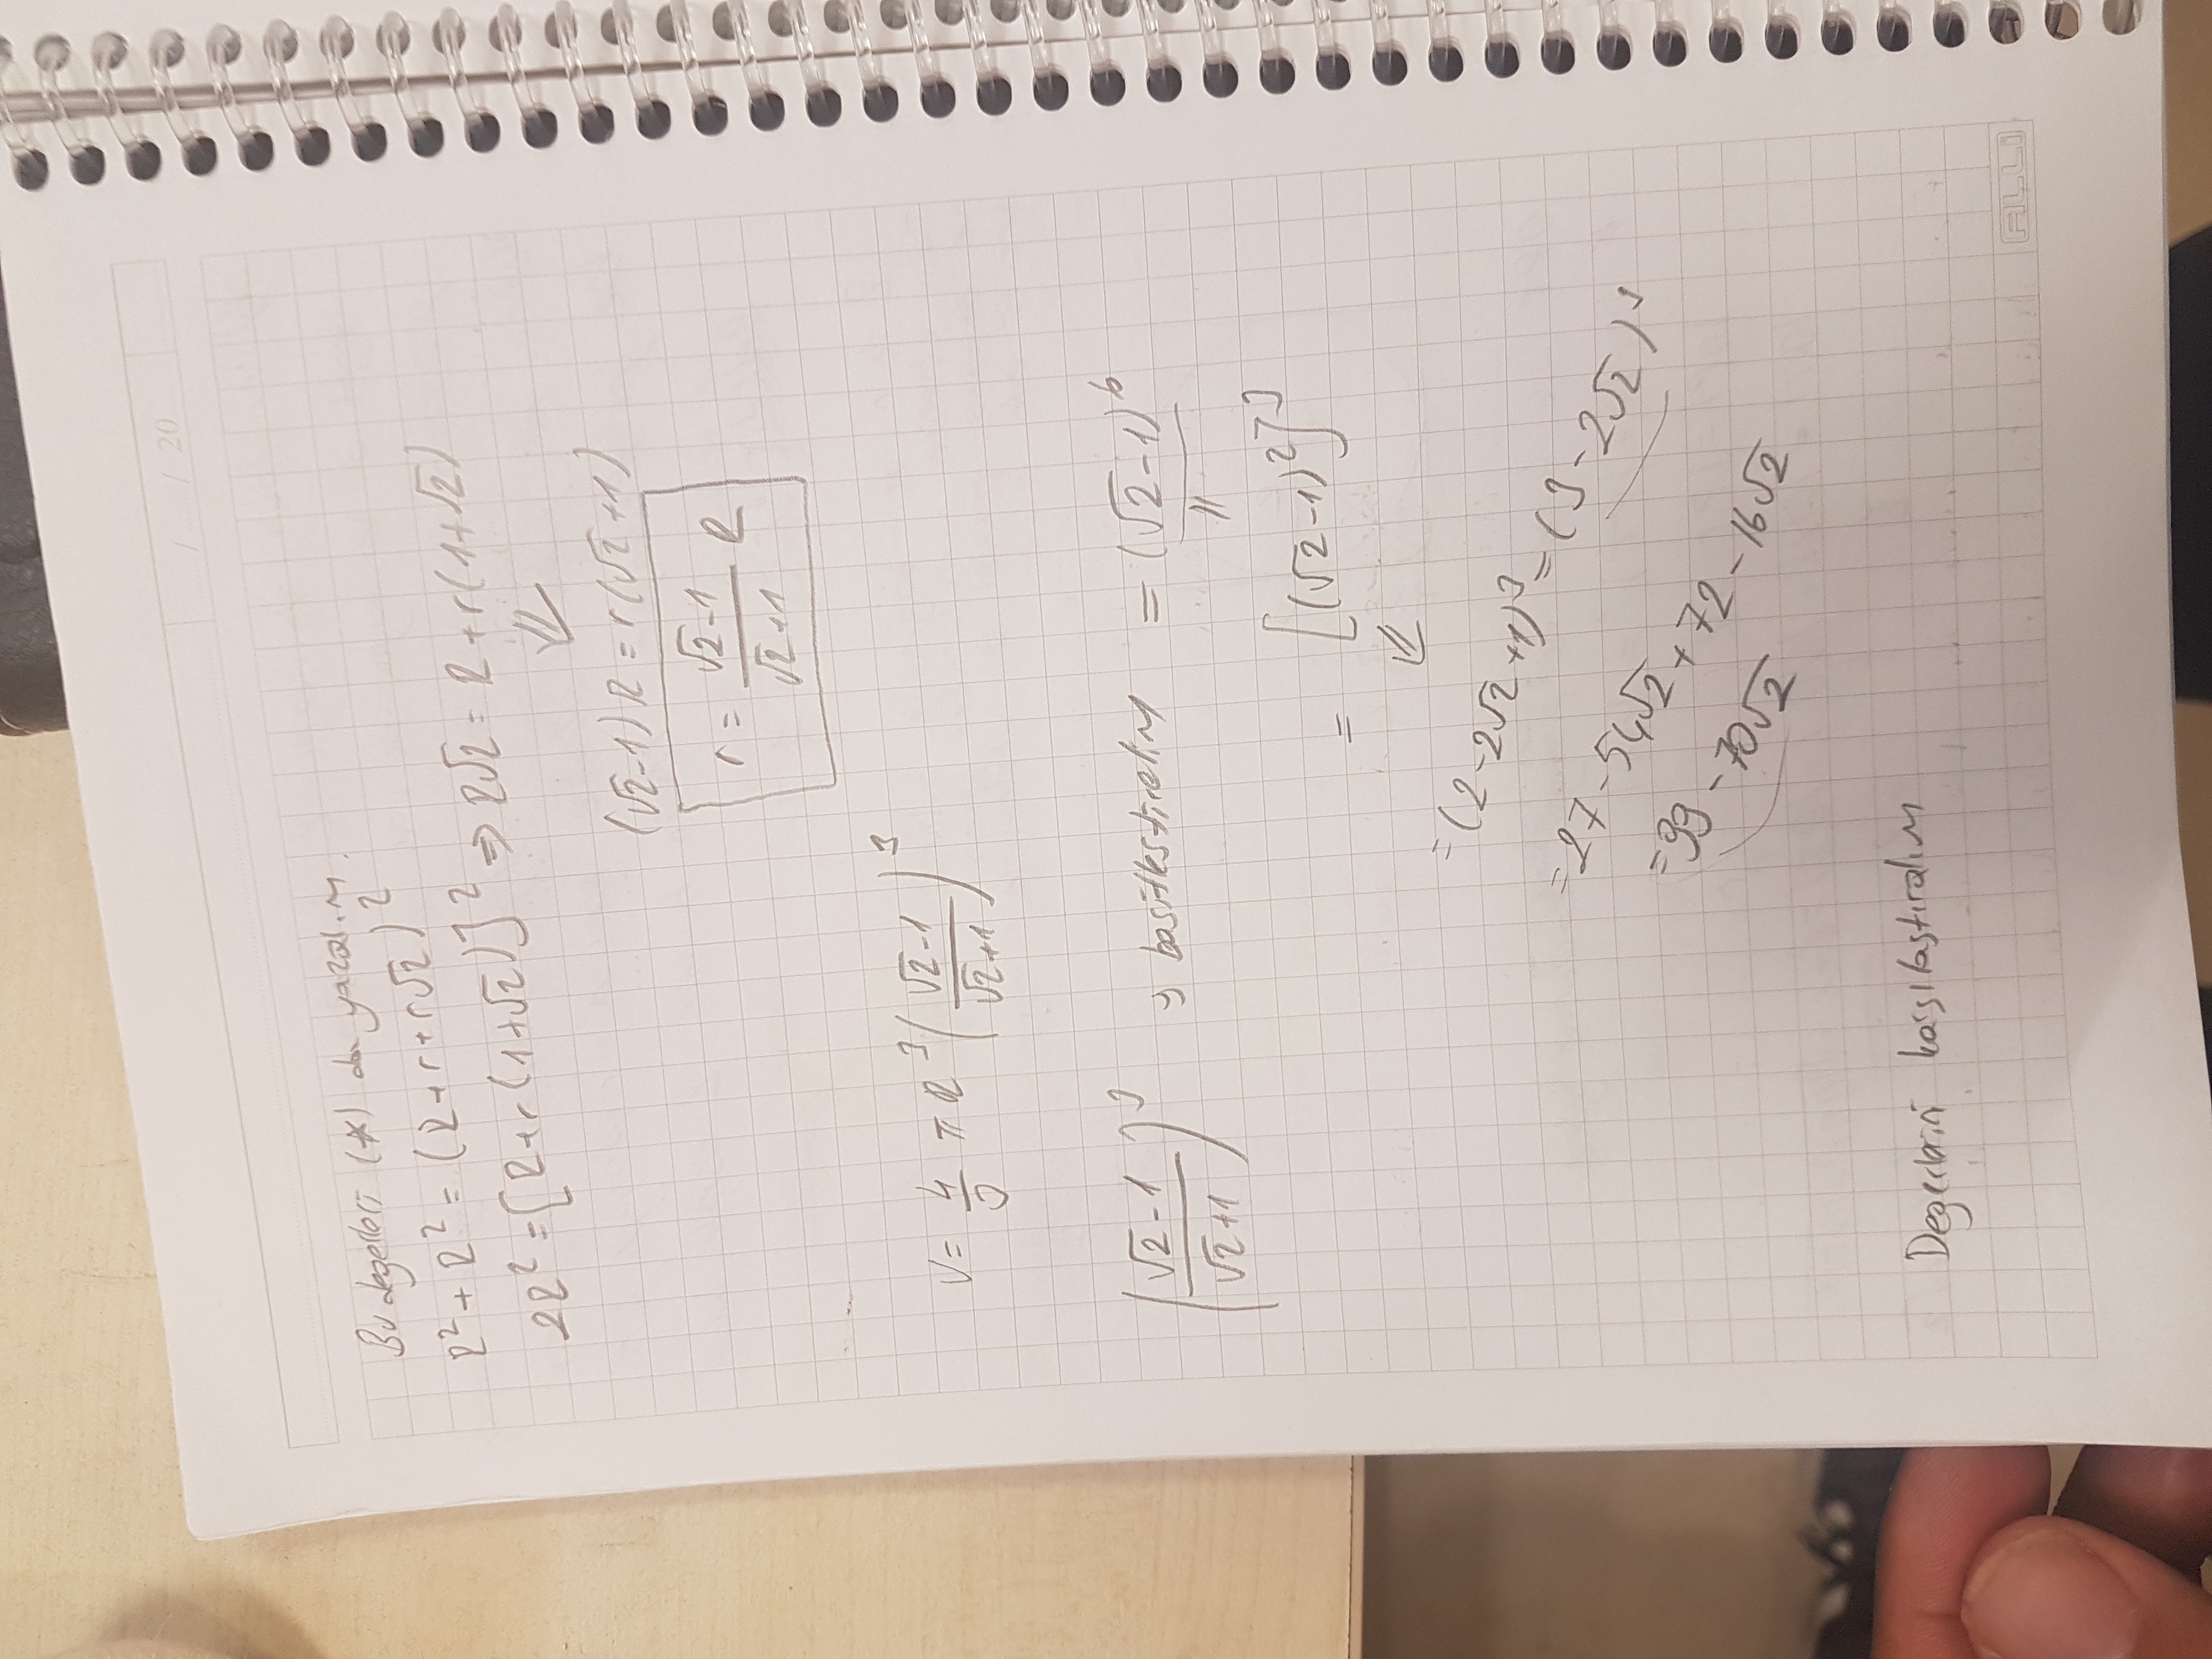 / / 20
Bu değerleri (*) da yazalım.
R² + R² = (R+r+r√2)²
2R² = [R+r(1+√2)]² ⇒ R√2 = R+r(1+√2)
⇓
(√2-1)R = r(√2+1)
r = (√2-1)/(√2+1) R
V = 4/3 π R³ ((√2-1)/(√2+1))³
((√2-1)/(√2+1))³ 'ü basitleştirelim = (√2-1)⁶
= [(√2-1)²]³
⇓
= (2-2√2+1)³ = (3-2√2)³
= 27-54√2+72-16√2
= 99-70√2
Değerlerini karşılaştıralım
ALLi